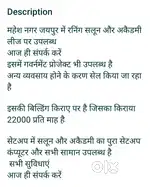 Description
महेश नगर जयपुर में रनिंग सलून और अकैडमी
लीज पर उपलब्ध
आज ही संपर्क करें
इसमें गवर्नमेंट प्रोजेक्ट भी उपलब्ध है
अन्य व्यवसाय होने के कारण सेल किया जा रहा
है
इसकी बिल्डिंग किराए पर है जिसका किराया
22000 प्रति माह है
सेटअप में सलून और अकैडमी का पुरा सेटअप
कंप्यूटर और सभी सामान उपलब्ध है
सभी सुविधाएं
आज ही संपर्क करें
olx